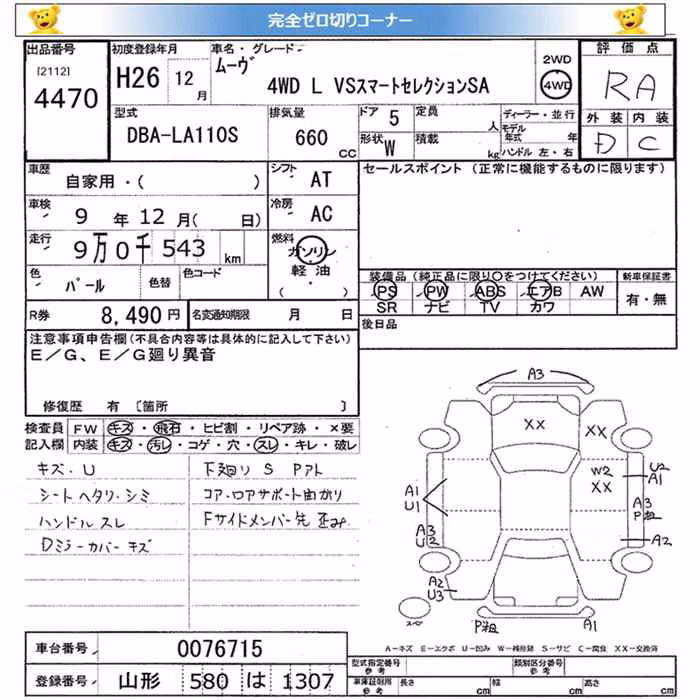 完全ゼロ切りコーナー
出品番号 初度登録年月 車名・グレード 評価点
[2112] 4470 H26 12月 ムーヴ 2WD 4WD
4WD L VSスマートセレクションSA RA
型式 排気量 ドア 5 定員 人 ディーラー・並行 外装 内装
DBA-LA110S 660 CC 形状 W 積載 kg モデル年式 年 D C
ハンドル 左・右
車歴 自家用・( ) シフト AT セールスポイント (正常に機能するものに限ります)
車検 9年12月( 日) 冷房 AC
走行 9万0千543km 燃料 ガソリン
軽油
・( )
色 パール 色替 色コード 装備品 (純正品に限り○をつけてください) 新車保証書
PS PW ABS エアB AW 有・無
R券 8,490円 名変通知期限 月 日 SR ナビ TV カワ
注意事項申告欄(不具合内容等は具体的に記入して下さい) 後日品
E/G、E/G廻り異音
修復歴 有 〔箇所 〕
検査員 FW キズ・飛石・ヒビ割・リペア跡・×要
記入欄 内装 キズ・汚レ・コゲ・穴・スレ・キレ・破レ
キズ・U 下廻り S Pアト
シートヘタリ・シミ コア・ロアサポート曲がり
ハンドルスレ Fサイドメンバー先歪み
Dミラーカバーキズ
A3
XX XX
W2 XX U2 A1
A1 U1 A3 P粗
A3 U2 A2
A2 U3
スペア P粗 A1
A-キズ E-エクボ U-凹み W-補修跡 S-サビ C-腐食 XX-交換済
車台番号 0076715 型式指定番号 参考 類別区分番号 参考
登録番号 山形 580 は 1307 車庫証明用 参考 長さ cm 幅 cm 高さ cm